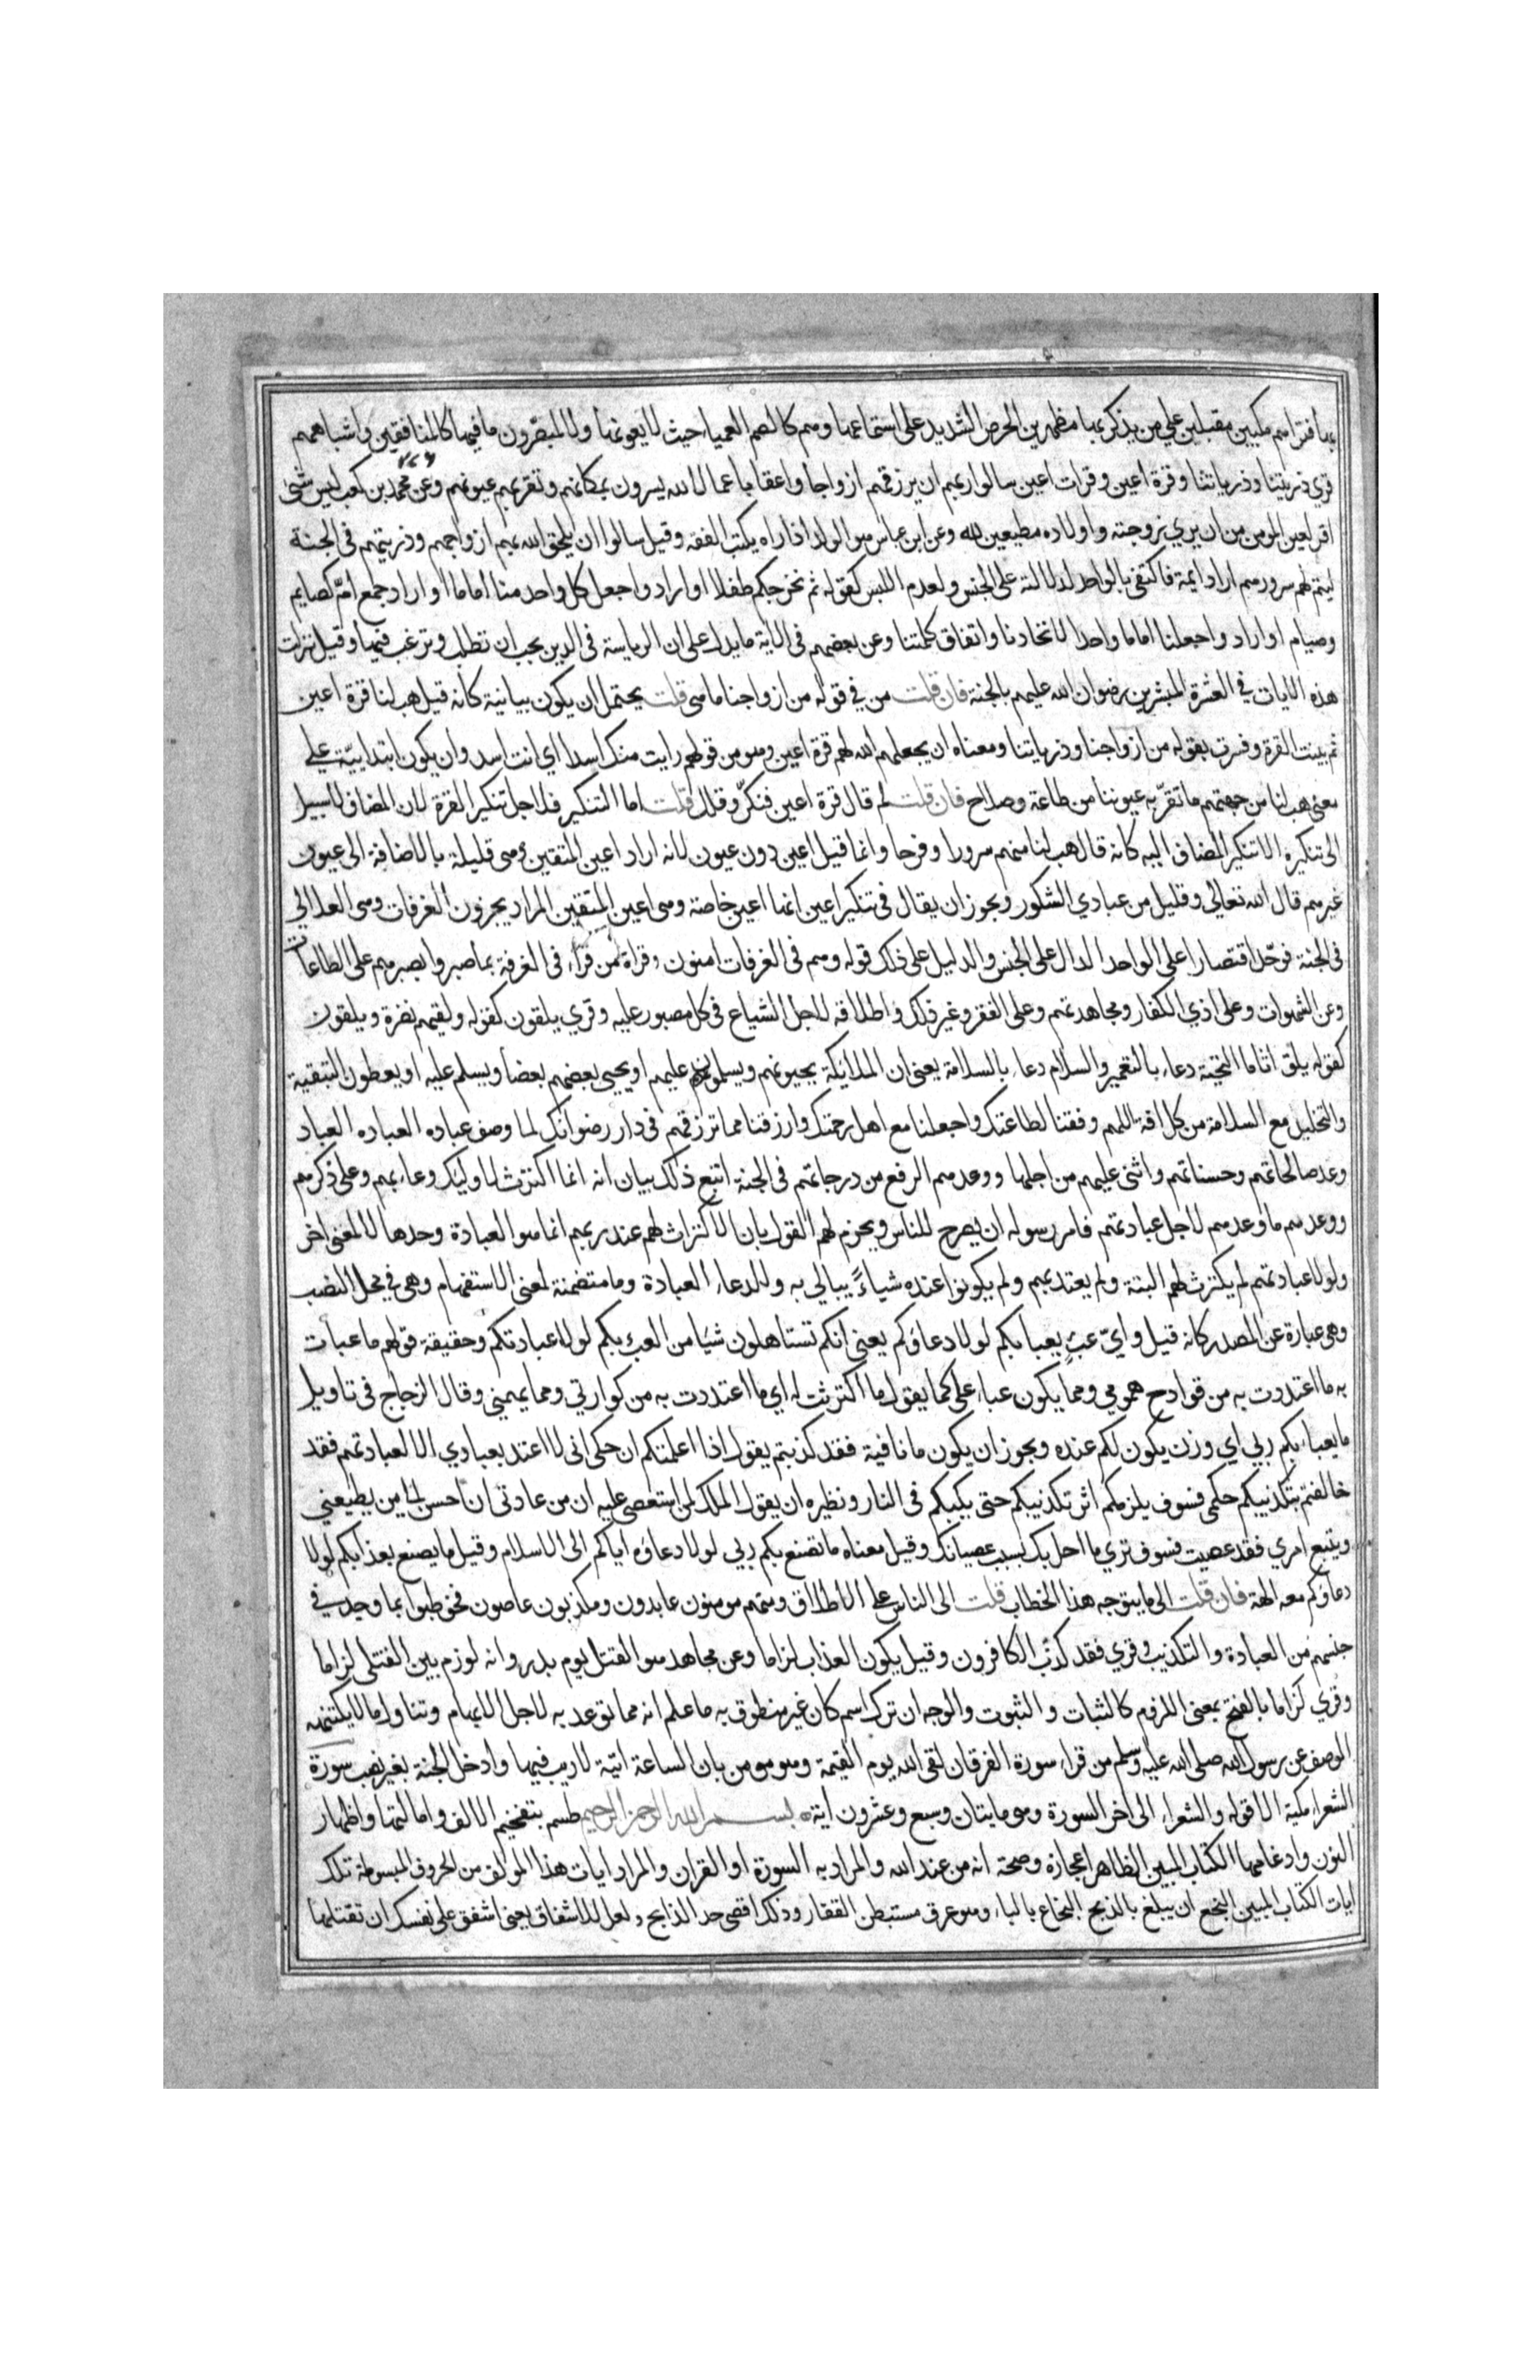 بها فتراهم مكبين مقبلين علي من يذكر بها مظهرين الحرص الشديد على استماعها وهم كالصم العميا حيث لا يعونها ولا المبصرون ما فيها كالمنافقين واشباههم
قري ذريتنا وذرياتنا وقرة اعين وقرات اعين سالوا ربهم ان يرزقهم ازواجا واعقابا عمالا لله يسرون بمكانهم وتقر بهم عيونهم وعن محمد بن كعب ليس شئ
اقر لعين المومن من ان يري زوجته واولاده مطيعين لله وعن ابن عباس هو الولد اذا راه يكتب الفقه وقيل سالوا ان يلحق الله بهم ازواجهم وذريتهم في الجنة
ليتم لهم سرورهم اراد ايمة فاكتفى بالواحد لدلالته على الجنس ولعدم اللبس كقوله ثم نخرجكم طفلا او اراد واجعل كل واحد منا اماما او اراد جمع امّ كصايم
وصيام او اراد واجعلنا اماما واحدا لاتحادنا واتفاق كلمتنا وعن بعضهم في الاية ما يدل على ان الرياسة في الدين يجب ان تطلب وترغب فيها وقيل نزلت
هذه الايات في العشرة المبشرين رضوان الله عليهم بالجنة فان قلت من في قوله من ازواجنا ما هى قلت يحتمل ان يكون بيانية كانه قيل هب لنا قرة اعين
ثم بينت القرة وفسرت بقوله من ازواجنا وذرياتنا ومعناه ان يجعلهم الله لهم قرة اعين وهو من قولهم رايت منك اسدا اي انت اسد وان يكون ابتدايية علي
معنى هب لنا من جهتهم ما تقرّ به عيوننا من طاعة وصلاح فان قلت لم قال قرة اعين فنكّر وقلل قلت اما التنكير فلاجل تنكير القرة لان المضاف لا سبيل
الى تنكيره الا تنكير المضاف اليه كانه قال هب لنا منهم سرورا وفرحا وانما قيل اعين دون عيون لانه اراد اعين المتقين وهى قليلة بالاضافة الى عيون
غيرهم قال الله تعالي وقليل من عبادي الشكور ويجوز ان يقال في تنكير اعين انها اعين خاصة وهى اعين المتّقين المراد يجزون الغرفات وهى العلالي
في الجنة فوحّد اقتصارا على الواحد الدال على الجنس والدليل على ذلك قوله وهم في الغرفات امنون وقراة من قرا في الغرفة بما صبروا بصبرهم على الطاعات
وعن الشهوات وعلى اذي الكفار ومجاهدتهم وعلى الفقر وغير ذلك واطلاقه لاجل الشياع في كل مصبور عليه وقري يلقون كقوله ولقيهم نضرة ويلقون
كقوله يلق اثاما التحية دعاء بالتعمير والسلام دعاء بالسلامة يعني ان الملايكة يحيونهم ويسلمون عليهم او يحيى بعضهم بعضا ويسلم عليه او يعطون التبقية
والتخليد مع السلامة من كل افة اللهم وفقنا لطاعتك واجعلنا مع اهل رحمتك وارزقنا مما ترزقهم في دار رضوانك لما وصف عباده العباده العباد
وعد صالحاتهم وحسناتهم واثنى عليهم من اجلها ووعدهم الرفع من درجاتهم في الجنة اتبع ذلك بيان انه انما اكترث لاوليك وعبا بهم وعلى ذكرهم
ووعدهم ما وعدهم لاجل عبادتهم فامر رسوله ان يصرح للناس ويجزم لهم القول بان الاكتراث لهم عند ربهم انما هو العبادة وحدها لا لمعنى اخر
ولولا عبادتهم لم يكترث لهم البتة ولم يعتد بهم ولم يكونوا عنده شياءً يبالي به والدعاء العبادة وما متضمنة لمعنى الاستفهام وهى في محل النصب
وهى عبارة عن المصدر كانه قيل وايّ عبءٍ يعبا بكم لولا دعاؤكم يعني انكم تستاهلون شيا من العبء بكم لولا عبادتكم وحقيقة قولهم ما عبات
به ما اعتدوت به من قوادح همومي ومما يكون عباء على كما يقول ما اكترثت له اي ما اعتددت به من كوارثي ومما يهمني وقال الزجاج في تاويل
ما يعباء بكم ربي اي وزن يكون لكم عنده ويجوز ان يكون ما نافية فقد كذبتم يقول اذا اعلمتكم ان حكمى انى لا اعتد بعبادي الا لعبادتهم فقد
خالفتم بتكذيبكم حكمى فسوف يلزمكم اثر تكذيبكم حتى يكبكم في النار ونظيره ان يقول الملك لمن استعصى عليه ان من عادتى ان احسن الى من يطيعني
ويتبع امري فقد عصيت فسوف تري ما احل بك بسبب عصيانك وقيل معناه ما تصنع بكم ربي لولا دعاؤه اياكم الى الاسلام وقيل ما يصنع بعذابكم لولا
دعاؤكم معه الهة فان قلت الى ما يتوجه هذا الخطاب قلت الى الناس على الاطلاق ومنهم مومنون عابدون ومكذبون عاصون فخوطبوا بما وجد في
جنسهم من العبادة والتكذيب وقري فقد كذّب الكافرون وقيل يكون العذاب لزاما وعن مجاهد هو القتل يوم بدر وانه لوزم بين القتلى لزاما
وقري لزاما بالفتح بمعنى اللزوم كالثبات والثبوت والوجه ان ترك اسم كان غير منطوق به ما علم انه مما توعد به لاجل الابهام وتناول ما لا يكتنهه
الوصف عن رسول الله صلى الله عليه وسلم من قراء سورة الفرقان لقى الله يوم القيمة وهو مومن بان الساعة اتية لا ريب فيها وادخل الجنة بغير نصب سورة
الشعرا مكية الا قوله والشعراء الى اخر السورة وهو مايتان وسبع وعشرون اية بسم الله الرحمن الرحيم طسم بتفخيم الالف وامالتها واظهار
النون وادغامها الكتاب المبين الظاهر اعجازه وصحة انه من عند الله والمراد به السورة او القران والمراد ايات هذا المولف من الحروف المبسوطة تلك
ايات الكتاب المبين البخع ان يبلغ بالذبح البخاع بالباء وهو عرق مستبطن الفقار وذلك اقصى حد الذابح ولعل للاشفاق يعنى اشفق على نفسك ان تقتلها